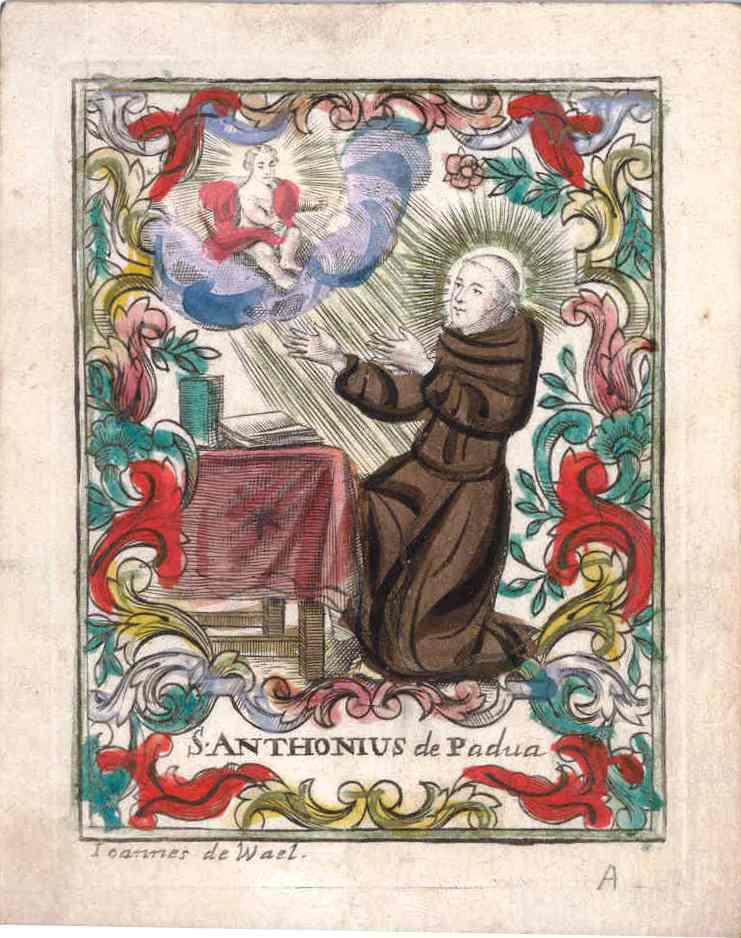 S. ANTHONIUS de Padua
Ioannes de Wael.
A